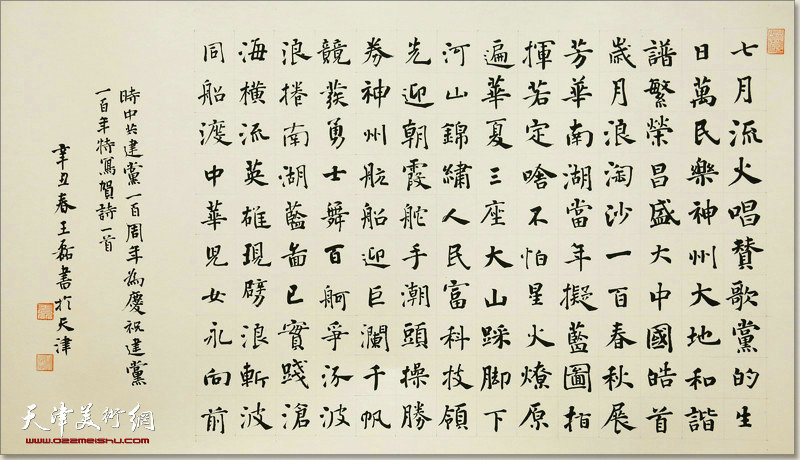 七月流火唱贊歌黨的生
日萬民樂神州大地和諧
譜繁榮昌盛大中國皓首
歲月浪淘沙一百春秋展
芳華南湖當年擬藍圖指
揮若定啥不怕星火燎原
遍華夏三座大山踩脚下
河山錦繡人民富科技領
先迎朝霞舵手潮頭操勝
券神州舷船迎巨瀾千帆
競發勇士舞百舸爭流波
浪捲南湖藍啚已實踐滄
海橫流英雄現劈浪斬波
同船渡中華児女永向前
時中共建黨一百周年為慶祝建黨
一百年特寫賀詩一首
辛丑春王磊書於天津
天津美術網
www.022meishu.com